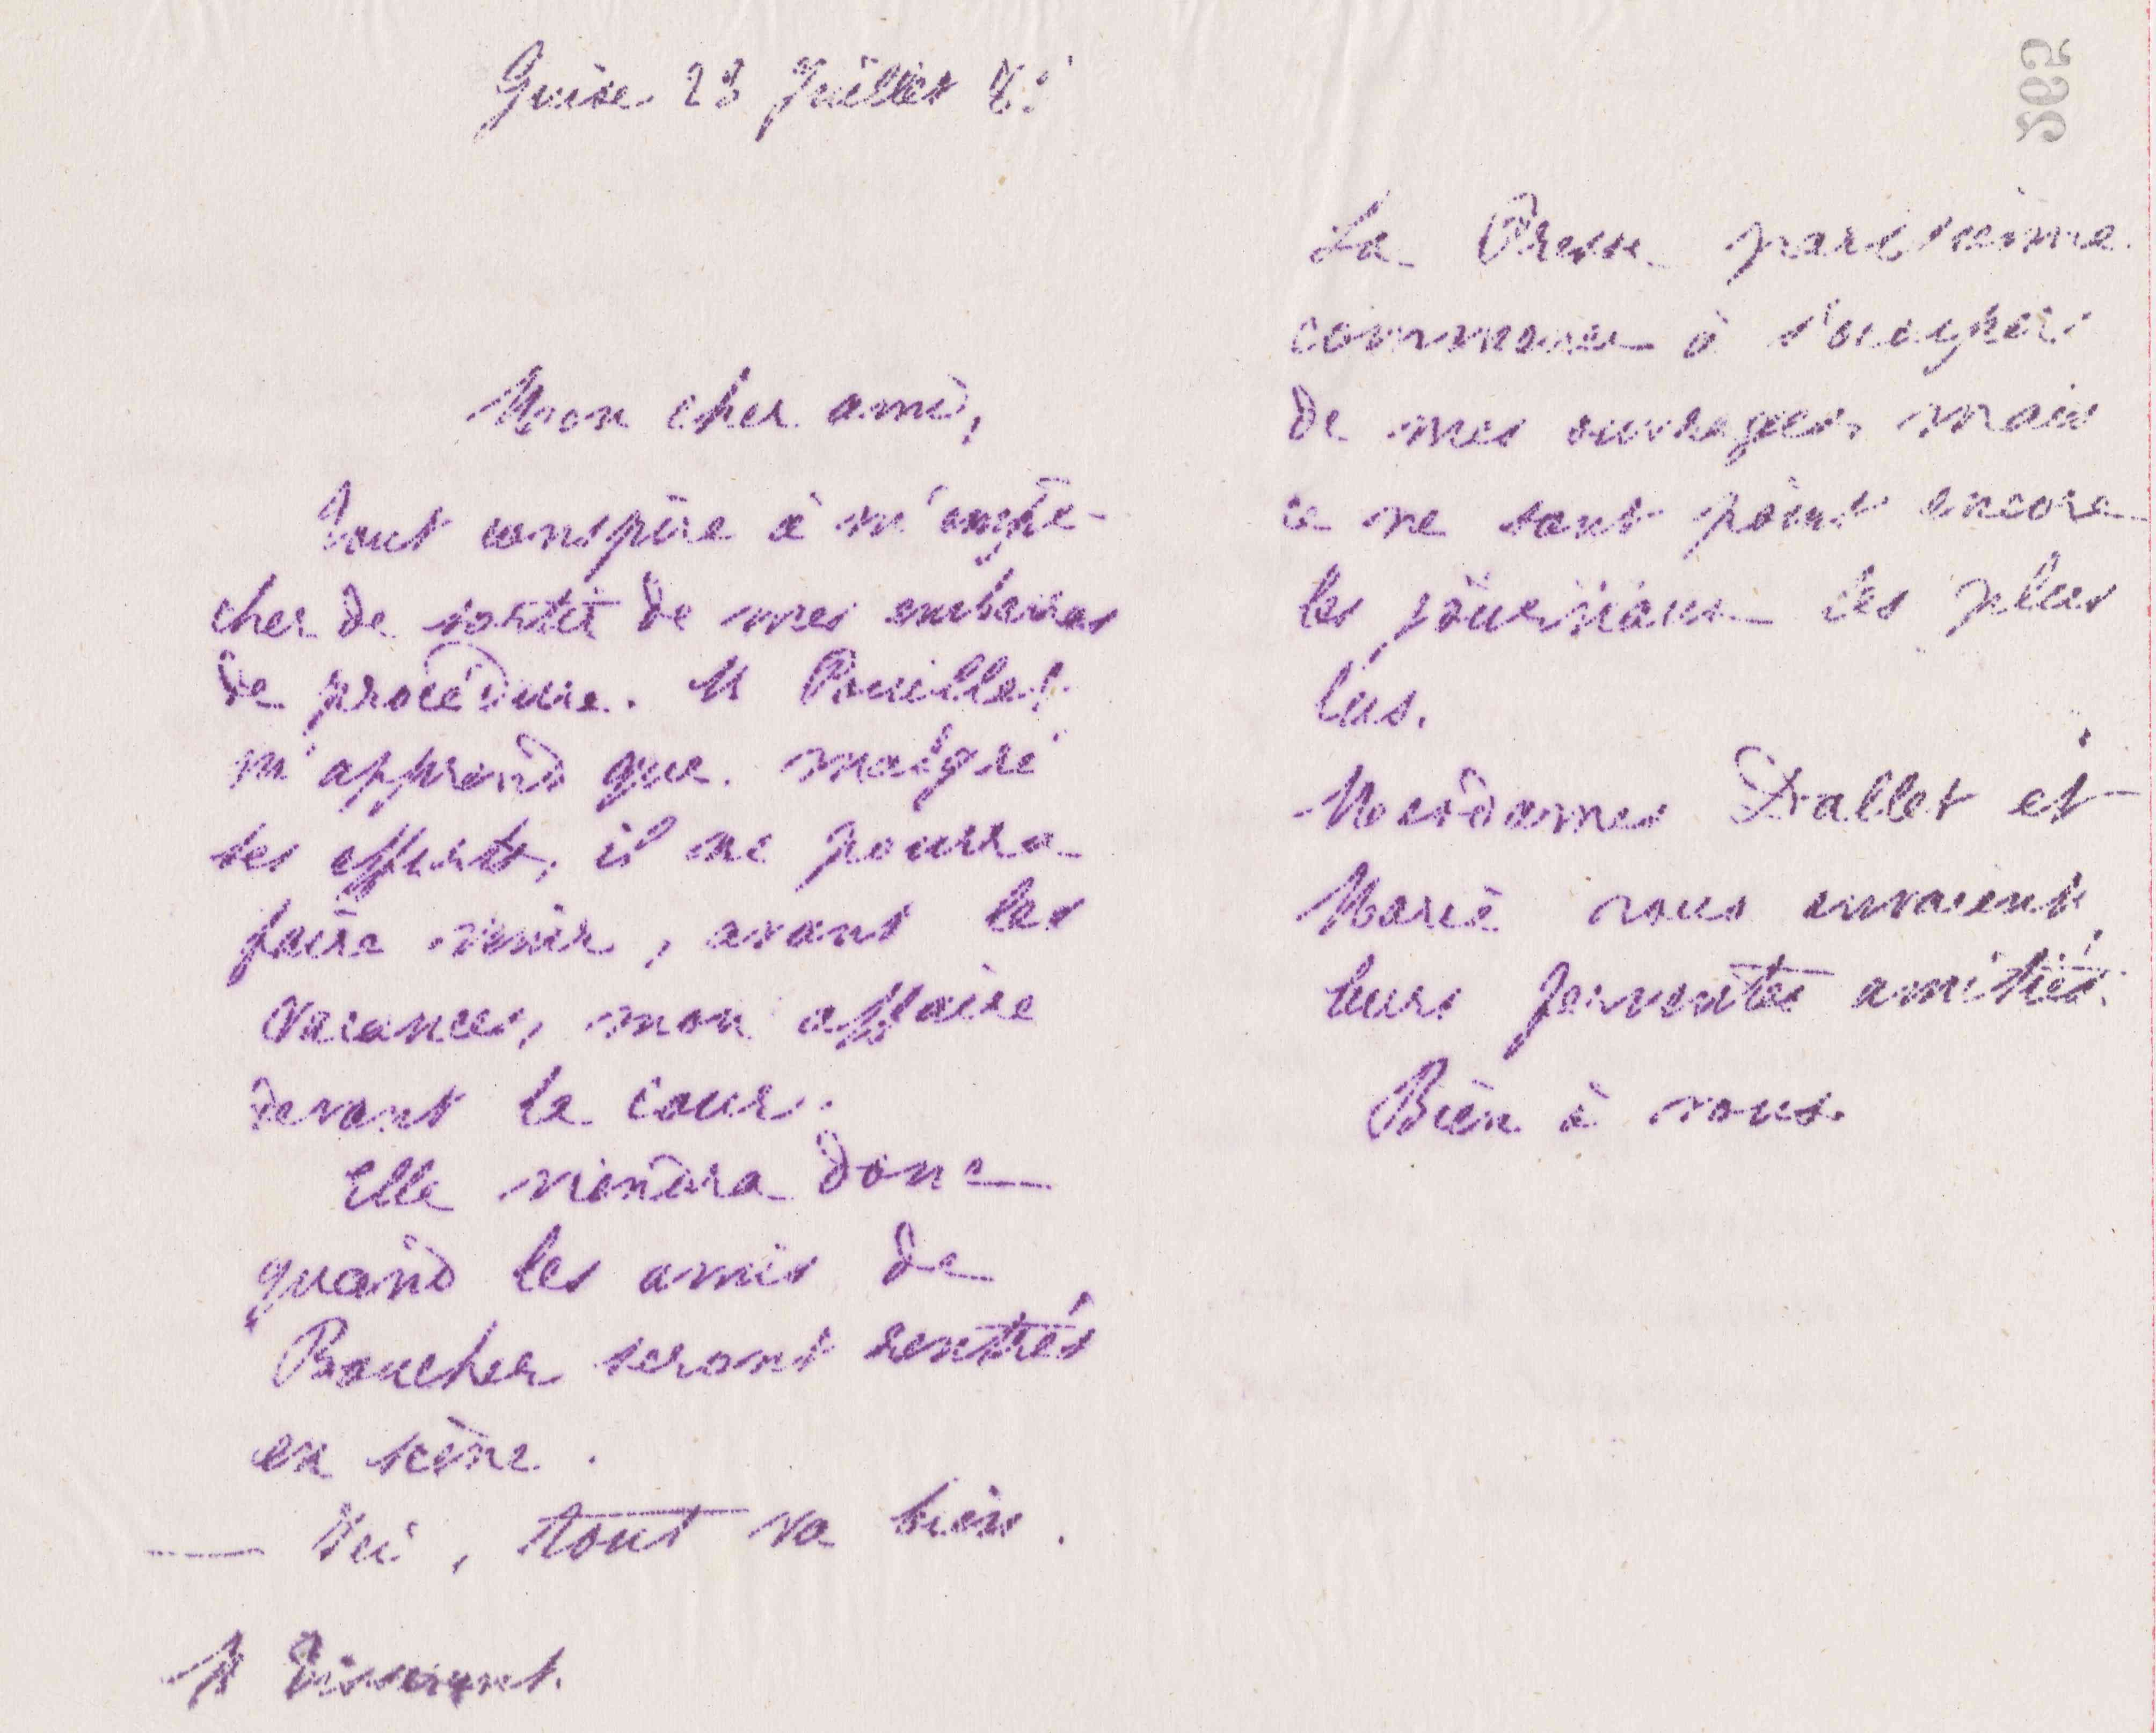 Guise 23 Juillet 8
Mon cher ami,
Tout conspire à m'empê-
cher de sortir de mes embarras
de procédure. M Pouillet
m'apprend que malgré
ses efforts, il ne pourra
faire venir, avant les
vacances, mon affaire
devant la cour.
Elle viendra donc
quand les amis de
Boucher seront rentrés
en scène.
— Ici, tout va bien.
M Tisserant.
La Presse parisienne
commence à s'occuper
de mes ouvrages, mais
ce ne sont point encore
les journaux les plus
lus.
Mesdames Dallet et
Marie vous envoient
leurs ferventes amitiés.
Bien à vous.
265